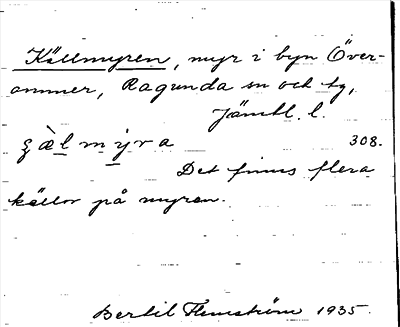 Källmyren, myr i byn Över-
ammer, Ragunda sn och tg,
Jämtl. l.
ȿὲl mỳra 308.
Det finns flera
källor på myren.
Bertil Flemström 1935.